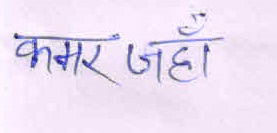 कमर जहाँ